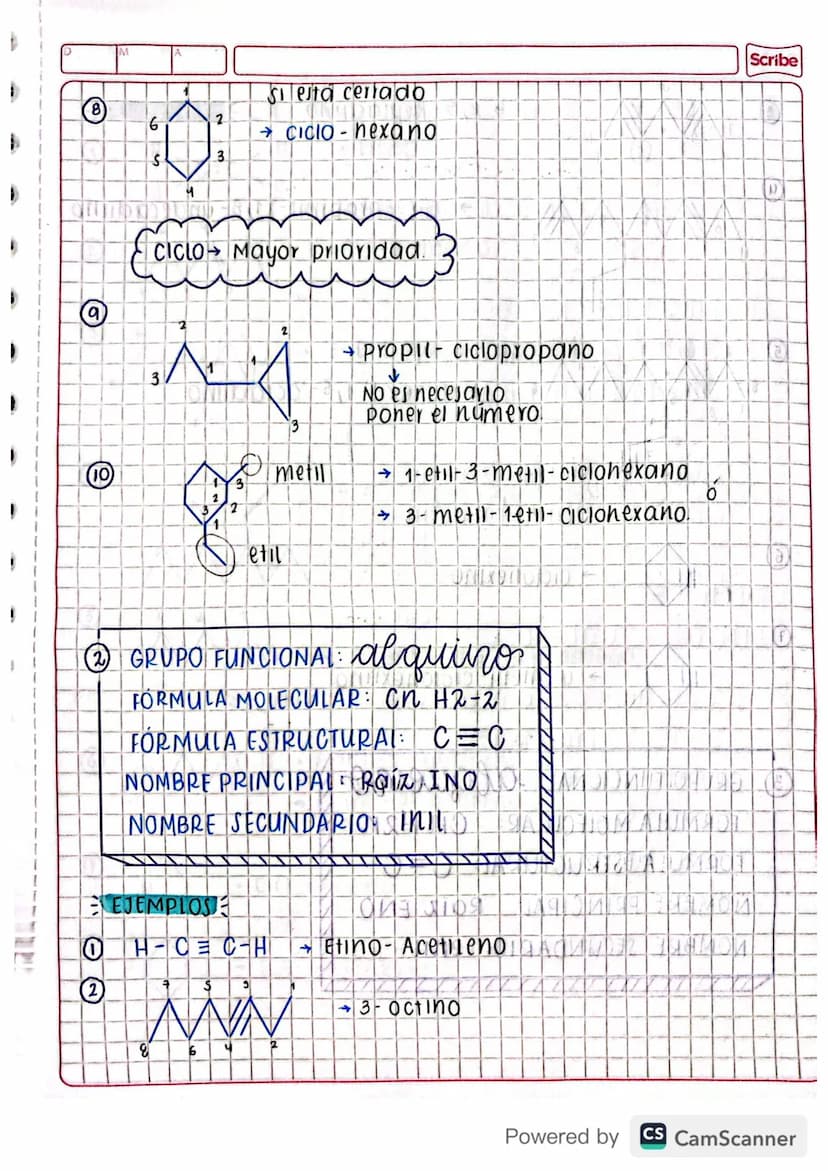 D M A
Scribe
8
1
6 2
5 3
4
si esta cerrado
→ ciclo - hexano
CICLO → Mayor prioridad.
9
2 2
3 1 1
3
→ Propil - ciclopropano
↓
No es necesario
poner el número.
10
metil
1 3
2
3 2
1
etil
→ 1-etil-3-metil-ciclohexano
ó
→ 3-metil-1-etil-ciclohexano.
2 GRUPO FUNCIONAL: alquino
FÓRMULA MOLECULAR: Cn H2-2
FÓRMULA ESTRUCTURAL: C≡C
NOMBRE PRINCIPAL: Raíz, INO
NOMBRE SECUNDARIO: INIL
EJEMPLOS
1 H - C ≡ C-H → Etino- Acetileno
2
7 5 3 1
8 6 4 2
→ 3-octino
Powered by CS CamScanner